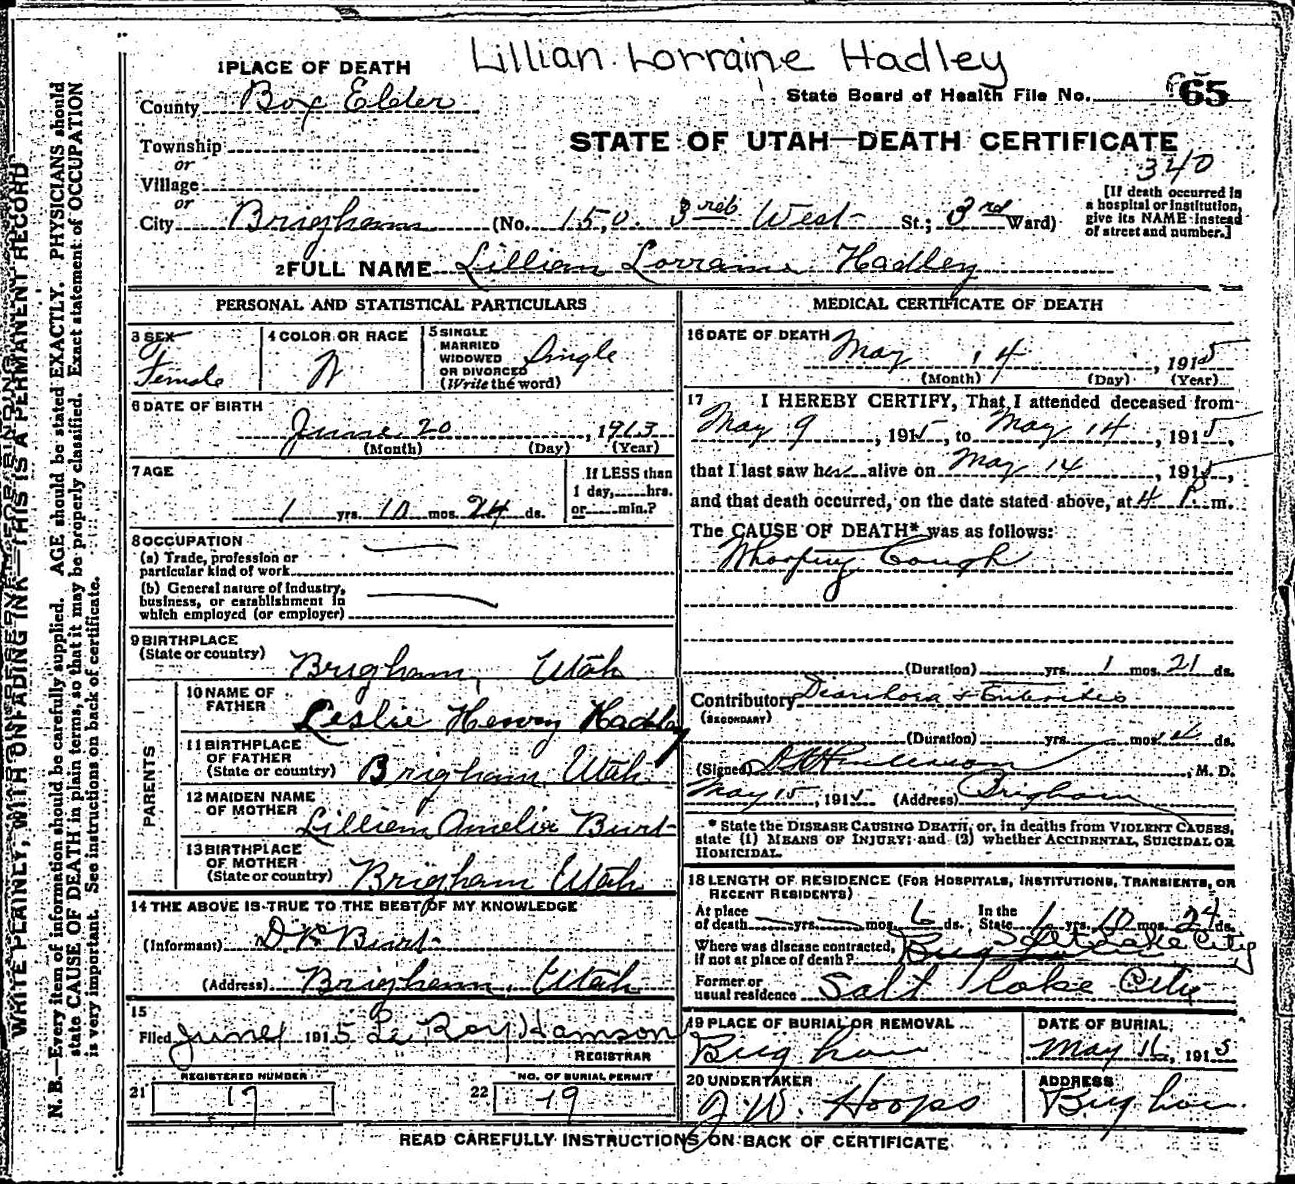 Lillian Lorraine Hadley
1 PLACE OF DEATH
County Box Elder
State Board of Health File No. 65
Township
or
Village
or
STATE OF UTAH—DEATH CERTIFICATE
340
[If death occurred in
a hospital or institution,
give its NAME instead
of street and number.]
City Brigham (No. 150. 3rd West St.; 3rd Ward)
2 FULL NAME Lillian Lorraine Hadley
PERSONAL AND STATISTICAL PARTICULARS
3 SEX
Female
4 COLOR OR RACE
W
5 SINGLE
MARRIED
WIDOWED
OR DIVORCED
(Write the word)
Single
6 DATE OF BIRTH
June 20, 1913
(Month) (Day) (Year)
7 AGE
1 yrs. 10 mos. 24 ds.
If LESS than
1 day, hrs.
or min.?
8 OCCUPATION
(a) Trade, profession or
particular kind of work
(b) General nature of industry,
business, or establishment in
which employed (or employer)
9 BIRTHPLACE
(State or country)
Brigham, Utah
PARENTS
10 NAME OF
FATHER
Leslie Henry Hadley
11 BIRTHPLACE
OF FATHER
(State or country)
Brigham, Utah
12 MAIDEN NAME
OF MOTHER
Lillian Amelia Burt
13 BIRTHPLACE
OF MOTHER
(State or country)
Brigham Utah
14 THE ABOVE IS TRUE TO THE BEST OF MY KNOWLEDGE
(Informant) D R Burt
(Address) Brigham, Utah
15
Filed June 1 1915 Le Roy Hamson
REGISTRAR
REGISTERED NUMBER
21 17
NO. OF BURIAL PERMIT
22 19
MEDICAL CERTIFICATE OF DEATH
16 DATE OF DEATH
May 14, 1915
(Month) (Day) (Year)
17 I HEREBY CERTIFY, That I attended deceased from
May 9, 1915, to May 14, 1915,
that I last saw her alive on May 14, 1915
and that death occurred, on the date stated above, at 4 P m.
The CAUSE OF DEATH* was as follows:
Whooping Cough
(Duration) yrs. 1 mos. 21 ds.
Contributory Diarrhoea & Enteritis
(SECONDARY)
(Duration) yrs. mos. ds.
(Signed) M. D.
May 15, 1915 (Address) Brigham
* State the DISEASE CAUSING DEATH, or, in deaths from VIOLENT CAUSES,
state (1) MEANS OF INJURY; and (2) whether ACCIDENTAL, SUICIDAL OR
HOMICIDAL.
18 LENGTH OF RESIDENCE (FOR HOSPITALS, INSTITUTIONS, TRANSIENTS, OR
RECENT RESIDENTS)
At place
of death yrs. mos. 6 ds.
In the
State 1 yrs. 10 mos. 24 ds.
Where was disease contracted, Salt Lake City
if not at place of death?
Former or
usual residence Salt Lake City
19 PLACE OF BURIAL OR REMOVAL
Brigham
DATE OF BURIAL
May 16, 1915
20 UNDERTAKER
J. W. Hoops
ADDRESS
Brigham
READ CAREFULLY INSTRUCTIONS ON BACK OF CERTIFICATE
WRITE PLAINLY, WITH UNFADING INK—THIS IS A PERMANENT RECORD
N. B.—Every item of information should be carefully supplied. AGE should be stated EXACTLY. PHYSICIANS should
state CAUSE OF DEATH in plain terms, so that it may be properly classified. Exact statement of OCCUPATION
is very important. See instructions on back of certificate.